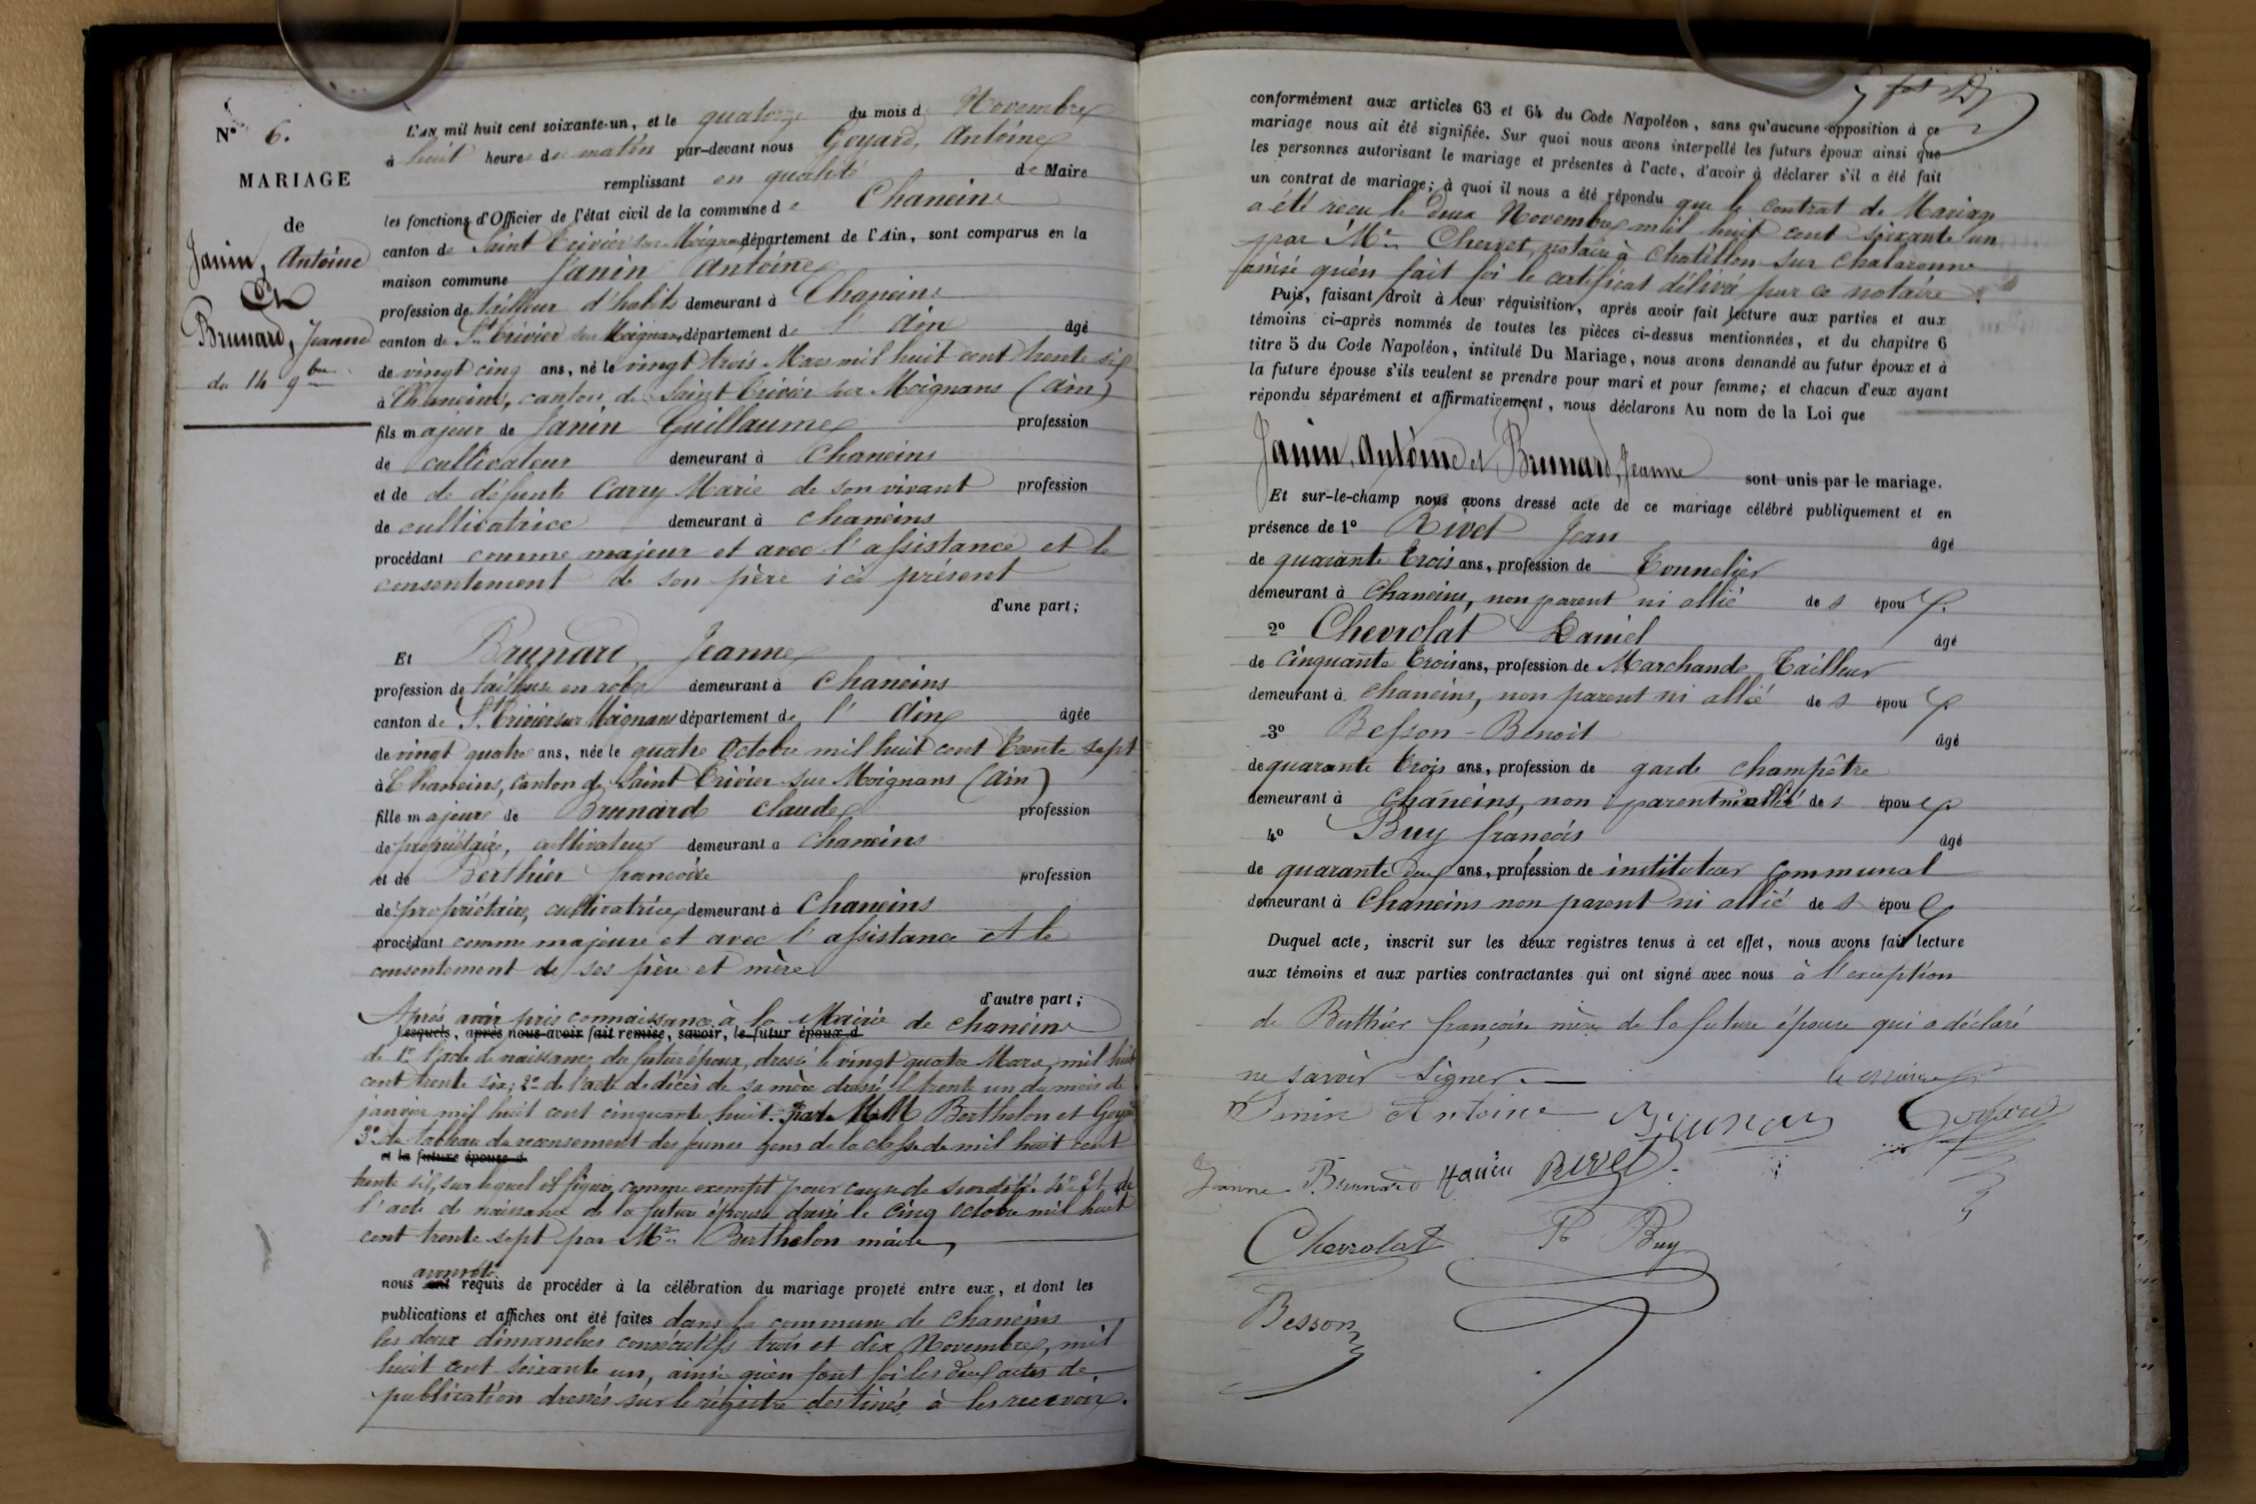 N° 6.
MARIAGE
de
Janin, Antoine
Et
Brunard, Jeanne
du 14 9bre
L'AN mil huit cent soixante-un, et le quatorze du mois d Novembre
à huit heures du matin par-devant nous Goyard, Antoine
remplissant en qualité de Maire
les fonctions d'Officier de l'état civil de la commune de Chaneins
canton de Saint Trivier sur Moignans département de l'Ain, sont comparus en la
maison commune Janin Antoine
profession de tailleur d'habits demeurant à Chaneins
canton de St Trivier sur Moignans, département de l' Ain âgé
de vingt cinq ans, né le vingt trois Mars mil huit cent trente six
à Chaneins, canton de Saint Trivier sur Moignans (Ain)
fils majeur de Janin Guillaume profession
de cultivateur demeurant à Chaneins
et de de défunte Carry Marie de son vivant profession
de cultivatrice demeurant à chaneins
procédant comme majeur et avec l'assistance et le
consentement de son père ici présent
d'une part;
Et Brunard, Jeanne
profession de tailleuse en robe demeurant à Chaneins
canton de St Trivier sur Moignans département de l' Ain âgée
de vingt quatre ans, née le quatre Octobre mil huit cent trente sept
à Chaneins, canton de Saint Trivier sur Moignans (Ain)
fille majeure de Brunard Claude profession
de propriétaire, cultivateur demeurant à Chaneins
et de Berthier françoise profession
de propriétaire, cultivatrice demeurant à Chaneins
procédant comme majeure et avec l'assistance et le
consentement de ses père et mère
d'autre part;
Après avoir pris connaissance à la Mairie de chaneins
Lesquels, après nous avoir fait remise, savoir, le futur époux d
de 1° l'acte de naissance du futur époux, dressé le vingt quatre Mars, mil huit
cent trente six; 2° de l'acte de décès de sa mère dressé le trente un du mois de
janvier mil huit cent cinquante huit. par MM Berthelon et Goyard
3° du tableau de recensement des jeunes gens de la classe de mil huit cent
et la future épouse d
trente six, sur lequel il figure comme exempt pour cause de surdité. 4° Et de
l'acte de naissance de la future épouse dressé le cinq octobre mil huit
cent trente sept par Mr Berthelon maire,
nous ont requis de procéder à la célébration du mariage projeté entre eux, et dont les
publications et affiches ont été faites dans la commune de chaneins
les deux dimanches consécutifs trois et dix Novembre, mil
huit cent soixante un, ainsi qu'en font foi les deux actes de
publication dressés sur le régistre destinés à les recevoir.
conformément aux articles 63 et 64 du Code Napoléon, sans qu'aucune opposition à ce
mariage nous ait été signifiée. Sur quoi nous avons interpellé les futurs époux ainsi que
les personnes autorisant le mariage et présentes à l'acte, d'avoir à déclarer s'il a été fait
un contrat de mariage; à quoi il nous a été répondu que le contrat de Mariage
a été reçu le deux Novembre mil huit cent soixante un
par Me Chervet, notaire à Chatillon sur Chalaronne
ainsi qu'en fait foi le certificat délivré par ce notaire.
Puis, faisant droit à leur réquisition, après avoir fait lecture aux parties et aux
témoins ci-après nommés de toutes les pièces ci-dessus mentionnées, et du chapitre 6
titre 5 du Code Napoléon, intitulé Du Mariage, nous avons demandé au futur époux et à
la future épouse s'ils veulent se prendre pour mari et pour femme; et chacun d'eux ayant
répondu séparément et affirmativement, nous déclarons Au nom de la Loi que
Janin, Antoine et Brunard, Jeanne sont unis par le mariage.
Et sur-le-champ nous avons dressé acte de ce mariage célébré publiquement et en
présence de 1° Rivet Jean âgé
de quarante trois ans, profession de Tonnelier
demeurant à Chaneins, non parent ni allié de s époux
2° Chevrolat Daniel âgé
de cinquante trois ans, profession de Marchande Tailleur
demeurant à chaneins, non parent ni allié de s époux
3° Besson - Benoit âgé
de quarante trois ans, profession de garde champêtre
demeurant à chaneins, non parent ni allié de s époux
4° Buy françois âgé
de quarante deux ans, profession de instituteur communal
demeurant à Chaneins non parent ni allié de s époux
Duquel acte, inscrit sur les deux registres tenus à cet effet, nous avons fait lecture
aux témoins et aux parties contractantes qui ont signé avec nous à l'exception
de Berthier françoise mère de la future épouse qui a déclaré
ne savoir signer. le maire
Janin Antoine Brunard Goyard
Jeanne Brunard Janin Rivet
Chevrolat Buy
Besson